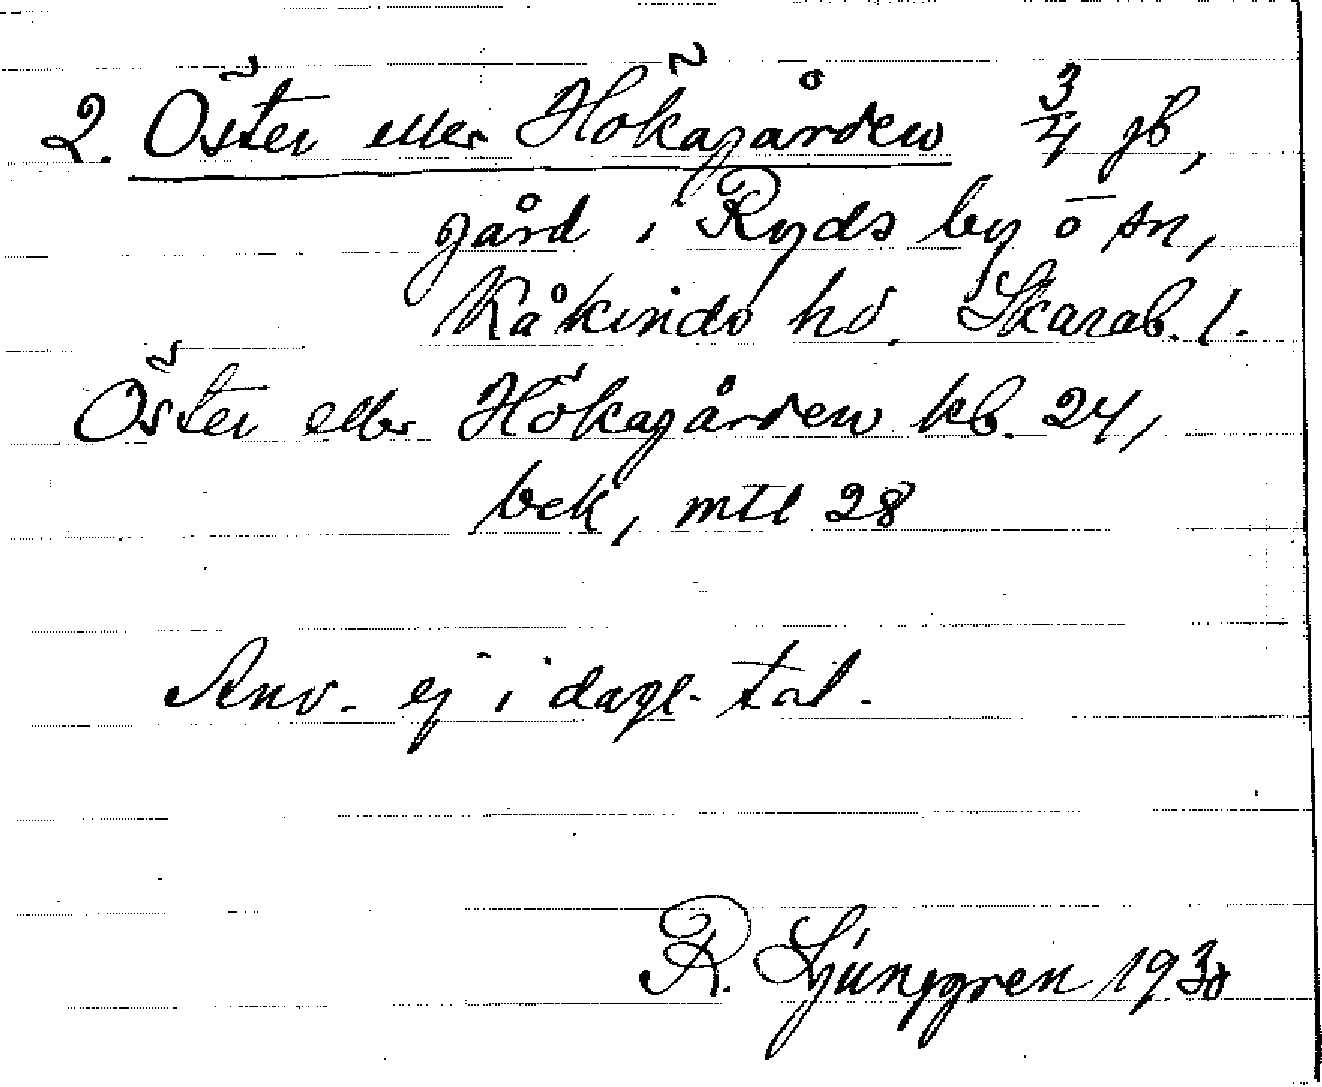 2. Öster eller Hökagården 3/4 gb,
gård i Ryds by o sn,
Kåkinds hd, Skarab. l.
Öster eller Hökagården kb. 24,
bek, mtl 28
Anv. ej i dagl. tal.
R. Ljunggren 1930